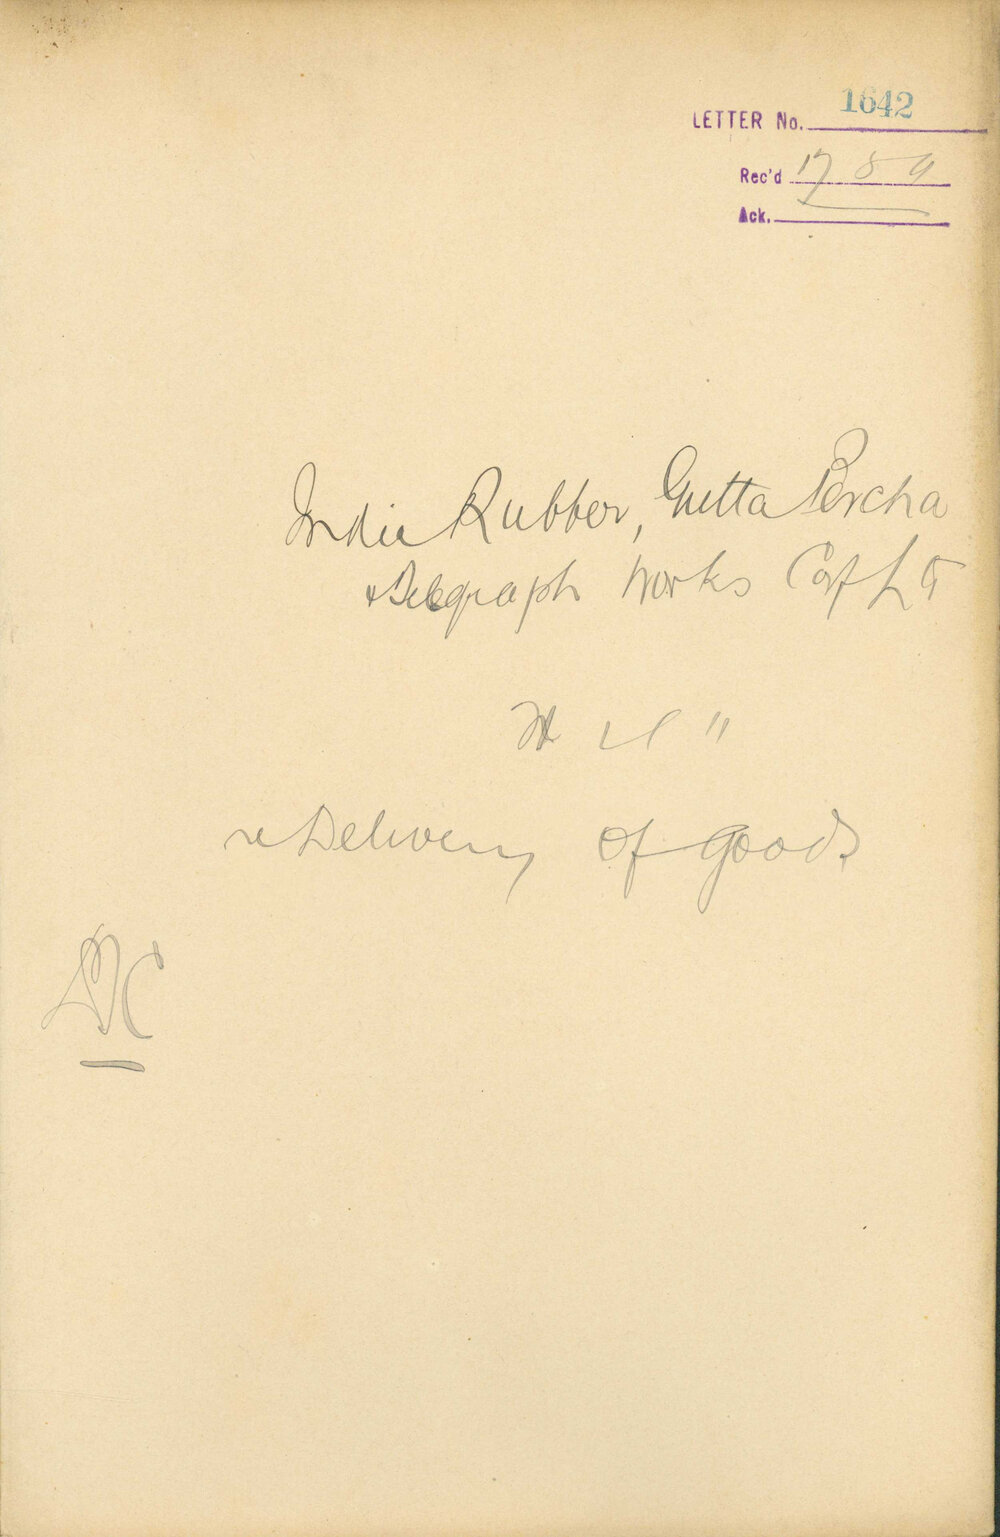 LETTER No. 1642
Rec'd 17 8
Ack.
India Rubber, Gutta Percha
& Telegraph Works Coy Ld
re Delivery of goods